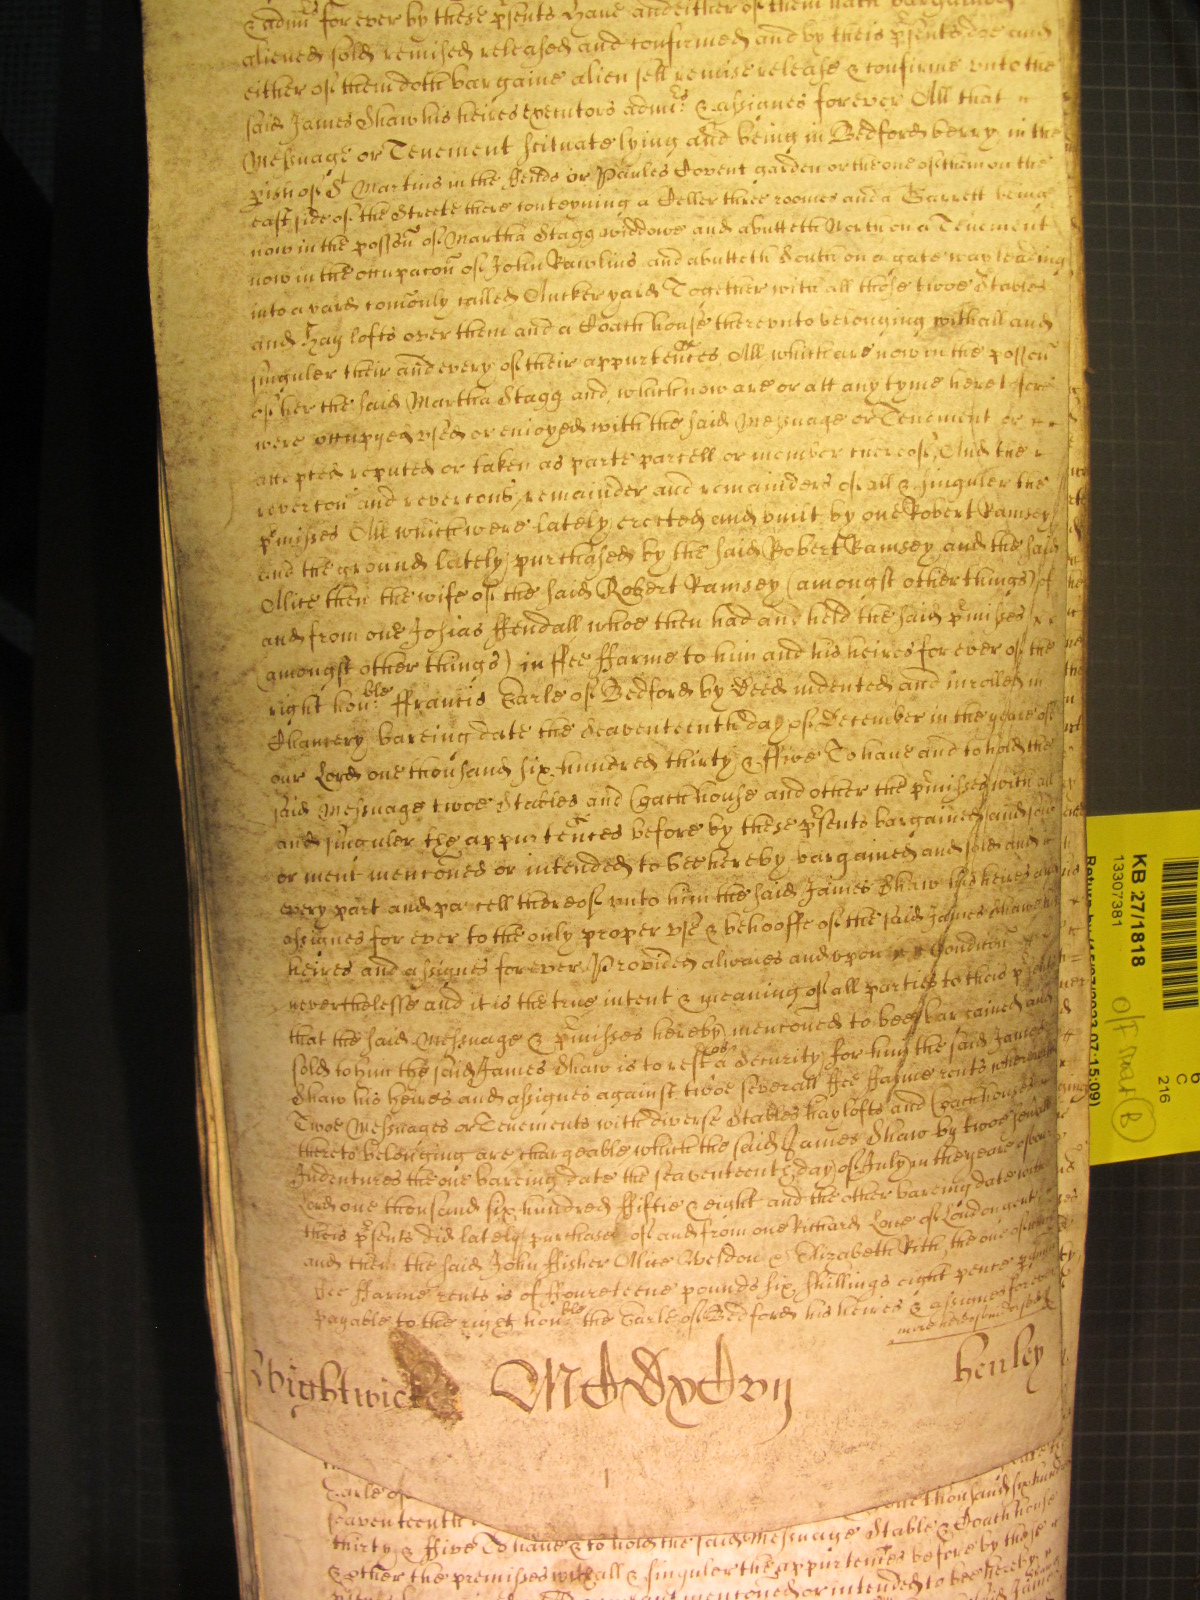 & admi^rs for ever by these p^rsents have and either of them hath bargained
aliened sold remised released and confirmed and by theis p^rsents doe and
either of them doth bargaine alien sell remise release & confirme unto the
said James Shaw his heires executors admi^rs & assignes forever All that
Messuage or Tenement scituate lying and being in Bedford berry in the
p^rish of S^t Martins in the Feilds or Paules Covent garden or the one of them on the
east side of the Streete there conteyning a Celler three roomes and a Garrett being
now in the possen of Martha Stagg widdowe and abutteth North on a Tenement
now in the occupacon of John Rawlins and abutteth South on a gate way leading
into a yard comonly called Ancker yard Together with all those twoe Stables
and Hay lofts over them and a Coach house thereunto belonging with all and
singuler their and every of their appurtences All which are now in the possen
of her the said Martha Stagg and which now are or att any tyme heretofore
were occupyed used or enioyed with the said Messuage or Tenement or
accepted reputed or taken as parte parcell or member thereof And the
revercon and revercons remainder and remainders of all & singuler the
p^rmisses All which were lately erected and built by one Robert Ramsey
and the ground lately purchased by the said Robert Ramsey and the said
Alice then the wife of the said Robert Ramsey (amongst other things) of
and from one Josias ffendall whoe then had and held the said p^rmisses
(amongst other things) in ffee ffarme to him and his heires for ever of the
right hon^ble ffrancis Earle of Bedford by Deed indented and inrolled in
Chancery bareing date the Seaventeenth day of December in the yeare of
our Lord one thousand six hundred thirty & ffive To have and to hold the
said Messuage twoe Stables and Coach house and other the p^rmisses with all
and singuler the appurtences before by these p^rsents bargained and sold
or ment menconed or intended to bee hereby bargained and sold and
every part and parcell thereof unto him the said James Shaw his heires and
assignes for ever to the only proper use & behooffe of the said James Shaw his
heires and assignes for ever Provided alwaies and upon Condicon
neverthelesse and it is the true intent & meaning of all parties to theis p^rsents
that the said Messuage & p^rmisses hereby menconed to bee bargained and
sold to him the said James Shaw is to rest as a Security for him the said James
Shaw his heires and assignes against twoe severall ffee ffarme rents wherewith
Twoe Messuages or Tenements with diverse Stables haylofts and Coachhouses
thereto belonging are chargeable which the said James Shaw by twoe severall
Indentures the one bareing date the seaventeenth day of July in the yeare of our
Lord one thousand six hundred fiftie & eight and the other bareing date with
theis p^rsents did lately purchase of and from one Richard Lone of London gent
and them the said John ffisher Alice Weldon & Elizabeth Rith the one of
ffee ffarme rents is of ffoureteene pounds six shillings eight pence
payable to the right hon^ble the Earle of Bedford his heires & assignes for ever
Wightwick MCDxCvij henley
Earle of
seaventeenth one thousand six hundred
thirty & ffive To have & to hold the said Messuage Stable & Coach house
& other the premisses with all & singuler the appurtences before by these
menconed or intended to bee hereby
KB 27/1818
13307381
Off Smart (B)
C
216